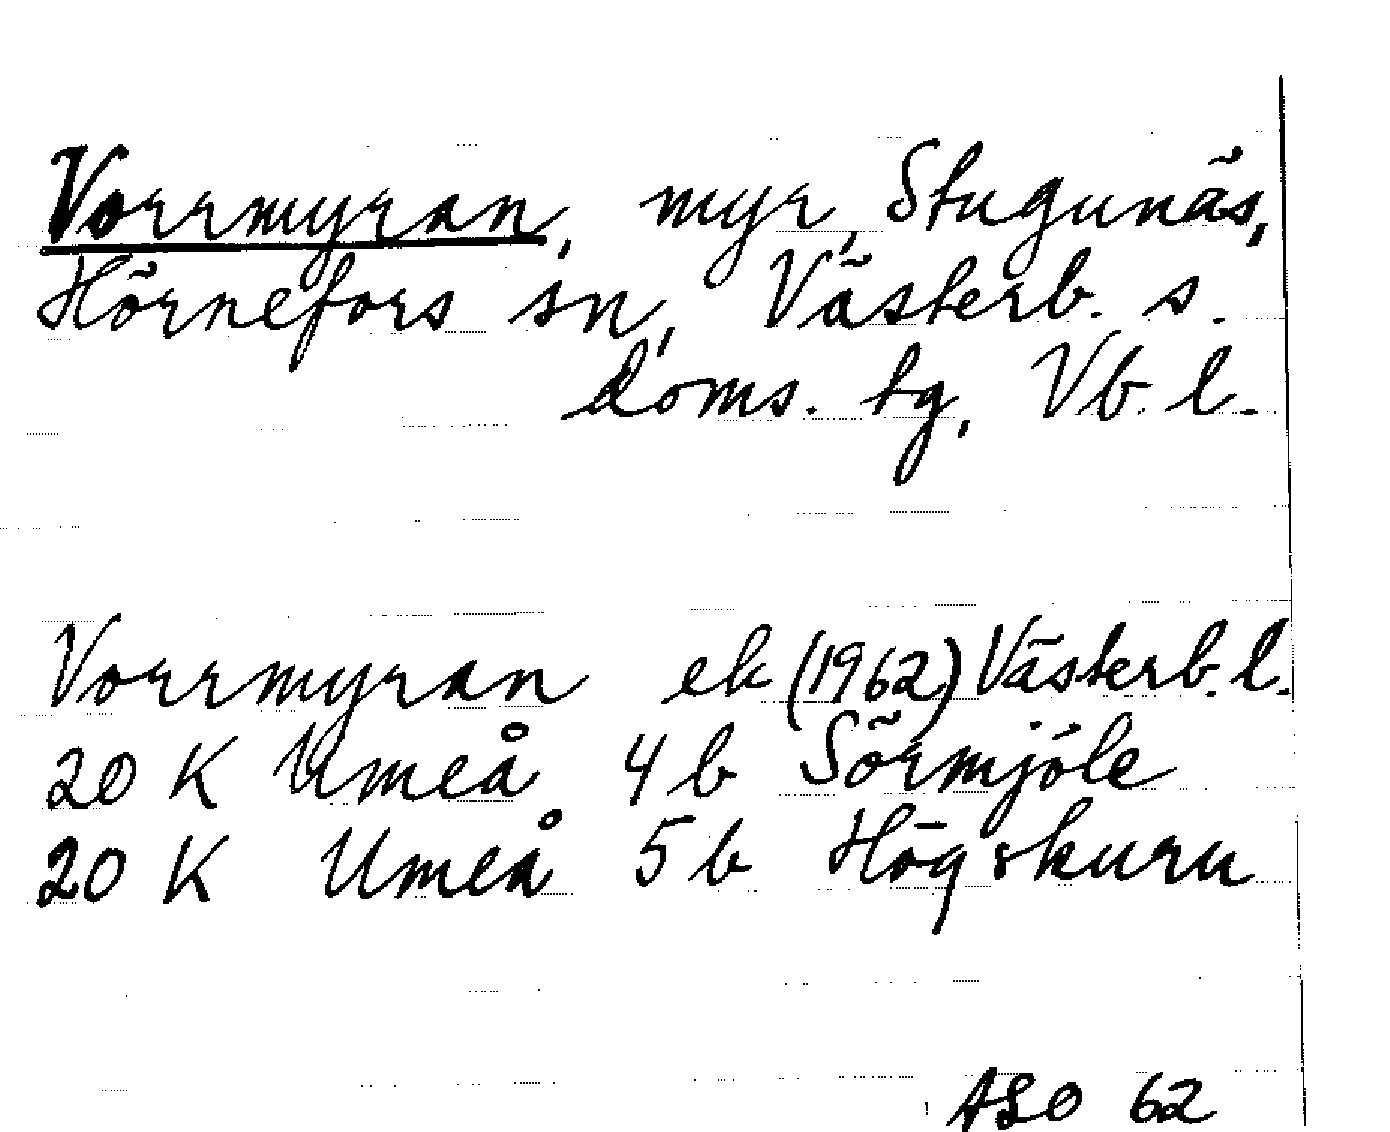 Vorrmyran, myr, Stugunäs,
Hörnefors sn, Västerb. s.
doms. tg, Vb. l.
Vorrmyran ek (1962) Västerb. l.
20 K Umeå 4 b Sörmjöle
20 K Umeå 5 b Högskuru
ASO 62